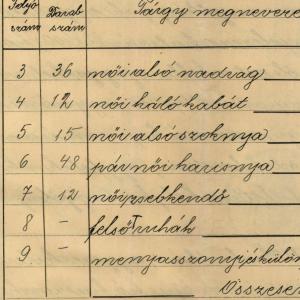 Folyó szám Darab szám Tárgy megneveze
3 36 női alsó nadrág
4 12 női háló kabát
5 15 női alsó szoknya
6 48 pár női harisnya
7 12 női zsebkendő
8 - felső ruhák
9 - menyasszonyi és külön
Összesen